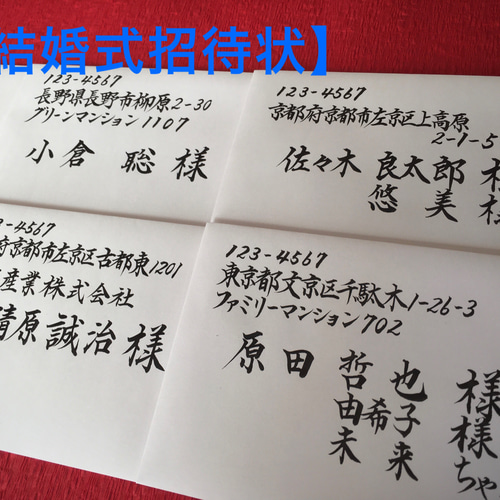 結婚式招待状】
123-4567
長野県長野市柳原2-30
グリーンマンション1107
小倉 聡 様
123-4567
京都府京都市左京区上高原
2-1-5
佐々木 良太郎 様
悠美 様
123-4567
府京都市左京区古都東1201
産業株式会社
清原誠治様
123-4567
東京都文京区千駄木1-26-3
ファミリーマンション702
原田 哲也 様
由希子 様
未来 ちゃ